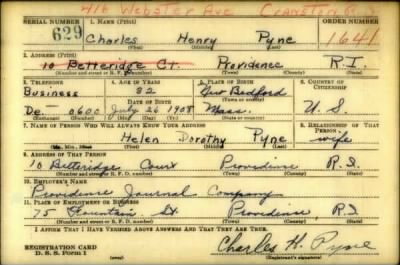 416 Webster Ave. Cranston R.I.
SERIAL NUMBER 1. NAME (Print) ORDER NUMBER
629 Charles Henry Pyne 1641
(First) (Middle) (Last)
2. ADDRESS (Print)
10 Betteridge Ct. Providence R.I.
(Number and street or R. F. D. number) (Town) (County) (State)
3. TELEPHONE 4. AGE IN YEARS 5. PLACE OF BIRTH 6. COUNTRY OF CITIZENSHIP
Business 32 New Bedford
(Town or county)
De 0600 DATE OF BIRTH July 26 1908 Mass. U.S.
(Exchange) (Number) (Mo.) (Day) (Yr.) (State or country)
7. NAME OF PERSON WHO WILL ALWAYS KNOW YOUR ADDRESS 8. RELATIONSHIP OF THAT PERSON
Helen Dorothy Pyne wife
(Mr., Mrs., Miss) (First) (Middle) (Last)
9. ADDRESS OF THAT PERSON
10 Betteridge Court Providence R.I.
(Number and street or R. F. D. number) (Town) (County) (State)
10. EMPLOYER'S NAME
Providence Journal Company
11. PLACE OF EMPLOYMENT OR BUSINESS
75 Fountain St Providence, R.I
(Number and street or R. F. D. number) (Town) (County) (State)
I AFFIRM THAT I HAVE VERIFIED ABOVE ANSWERS AND THAT THEY ARE TRUE.
REGISTRATION CARD
D. S. S. Form 1 (over) Charles H. Pyne
(Registrant's signature)